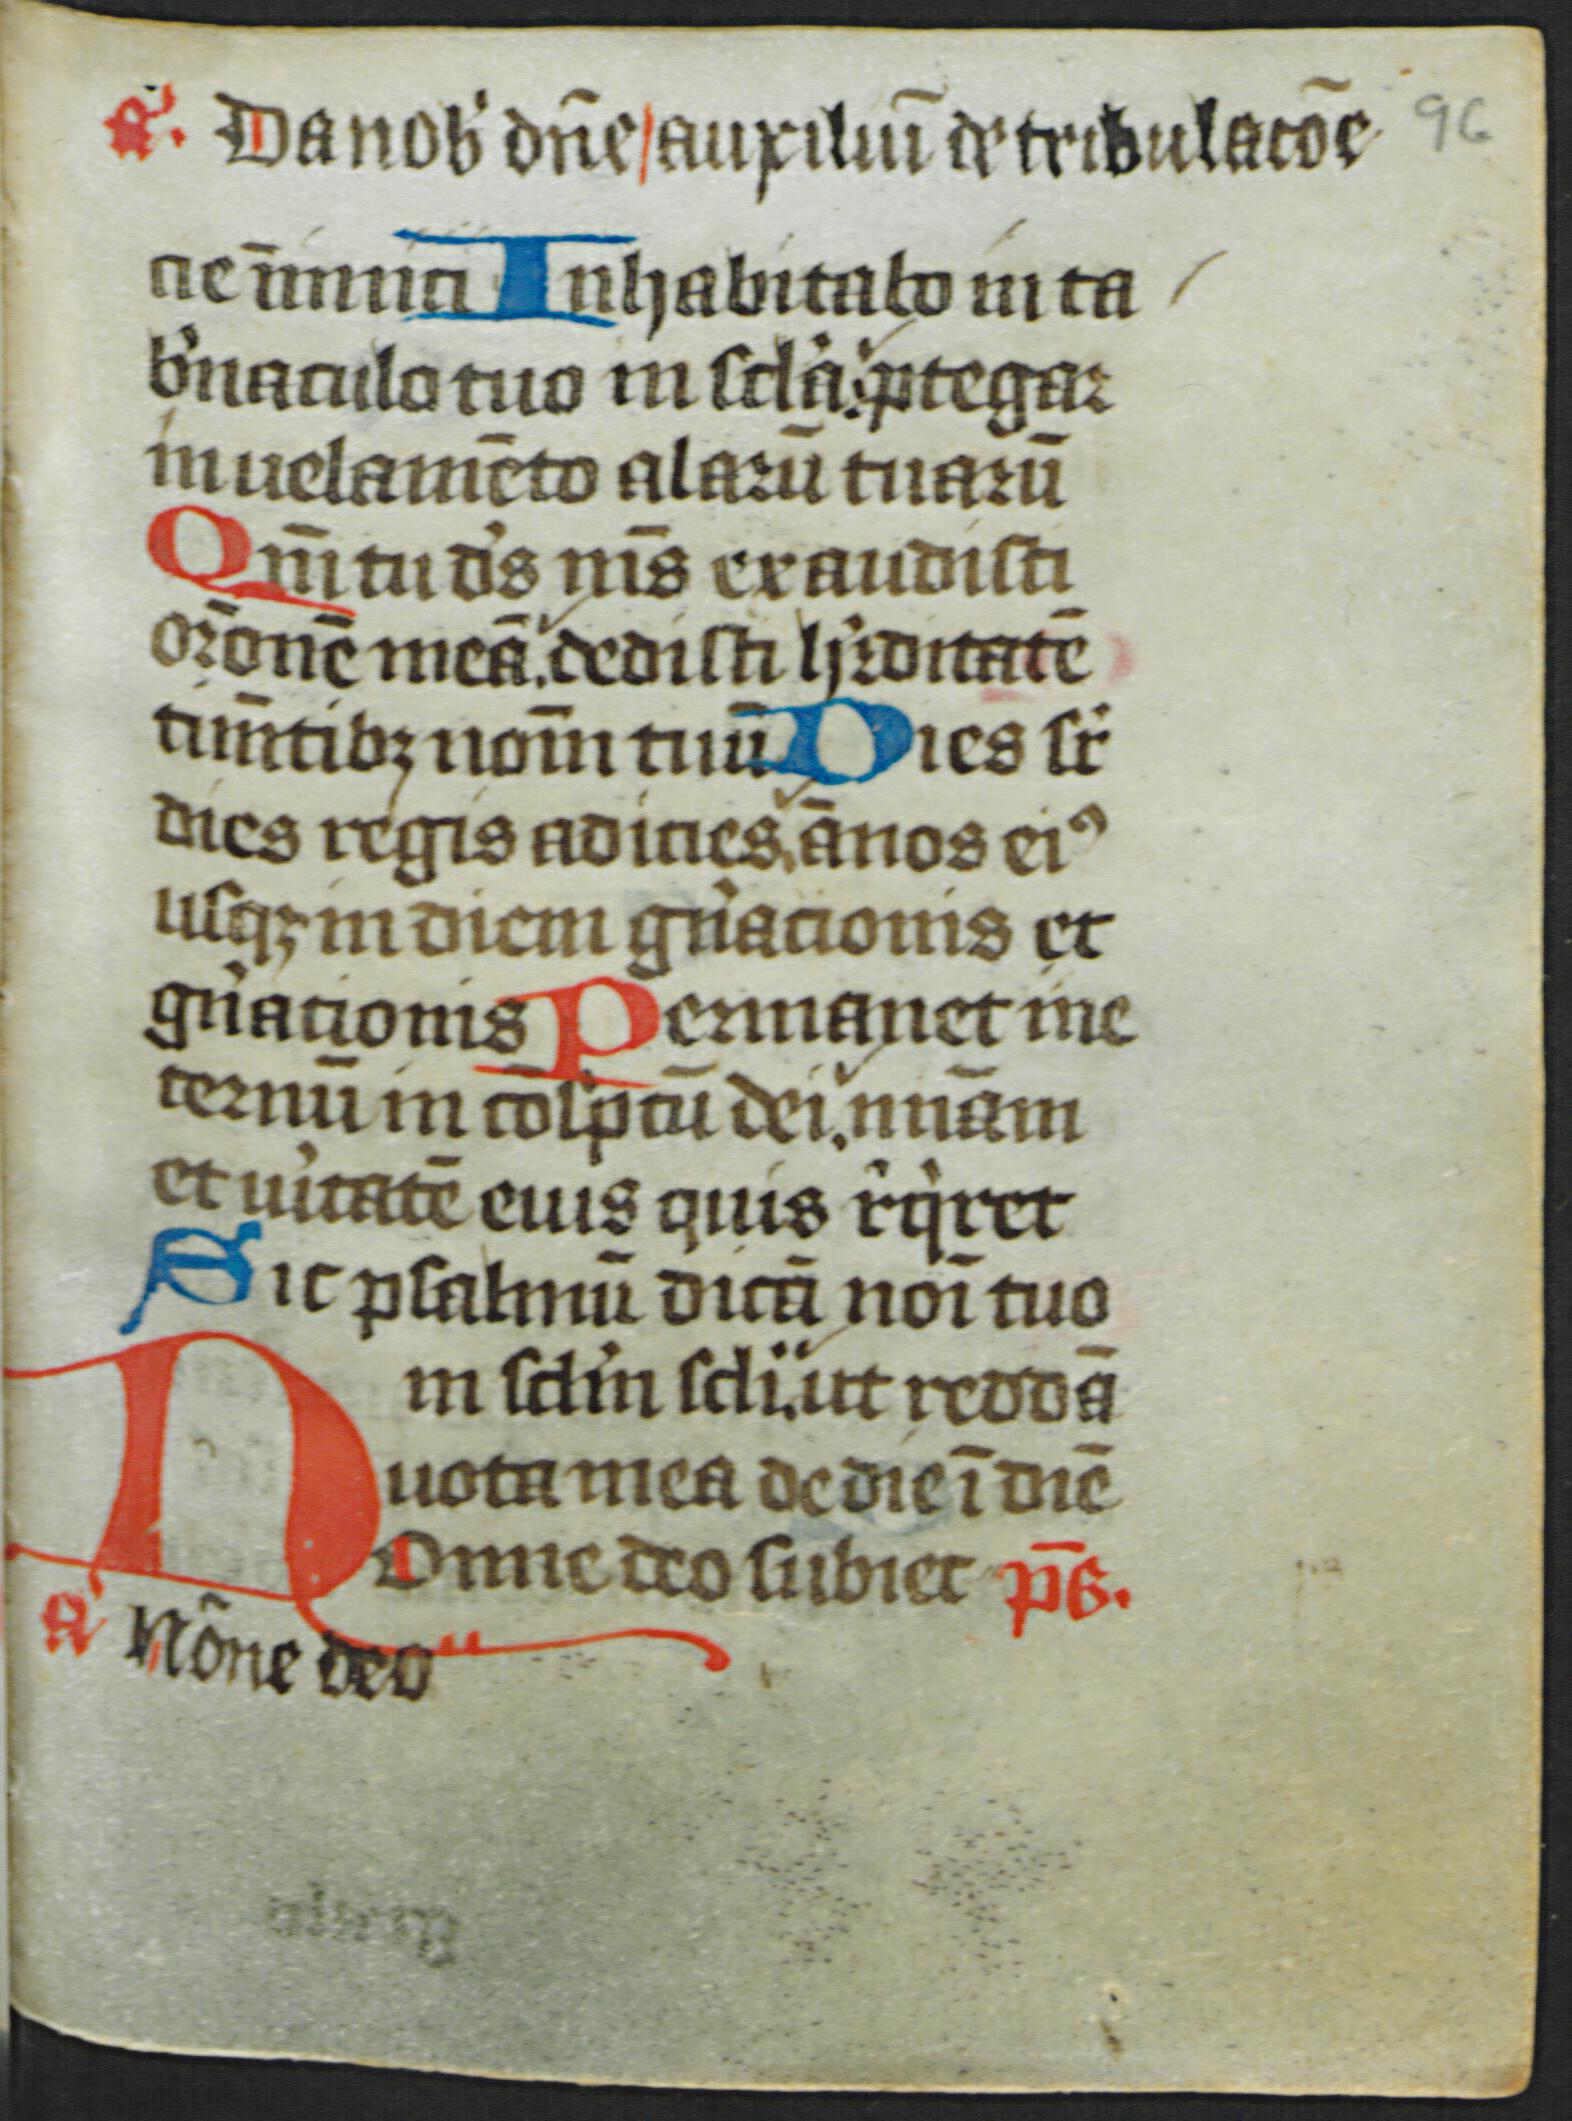 R. Da nob' dn̄e auxiliū de tribulacōe 96
cie īnimici Inhabitabo in ta
b'naculo tuo in scl'a: ꝓtegar
in uelamēto alarū tuarū
Qm̄ tu d's m̄s exaudisti
or̄onē meā. dedisti h'editatē
tim̄tibꝫ nom̄ tuū Dies sr̄
dies regis adicies. ānos eiꝯ
usqꝫ in diem gn'acionis et
gn'acionis Permanet in e
ternū in cōsp̄ctū dei. mīam
et u'itatē eius quis r'q'ret
Sic psalmū dicā noī tuo
in scl'm scl'i: ut reddā
uota mea de die ī diē
Nonne deo subiec ps̄.
A' Nōne deo